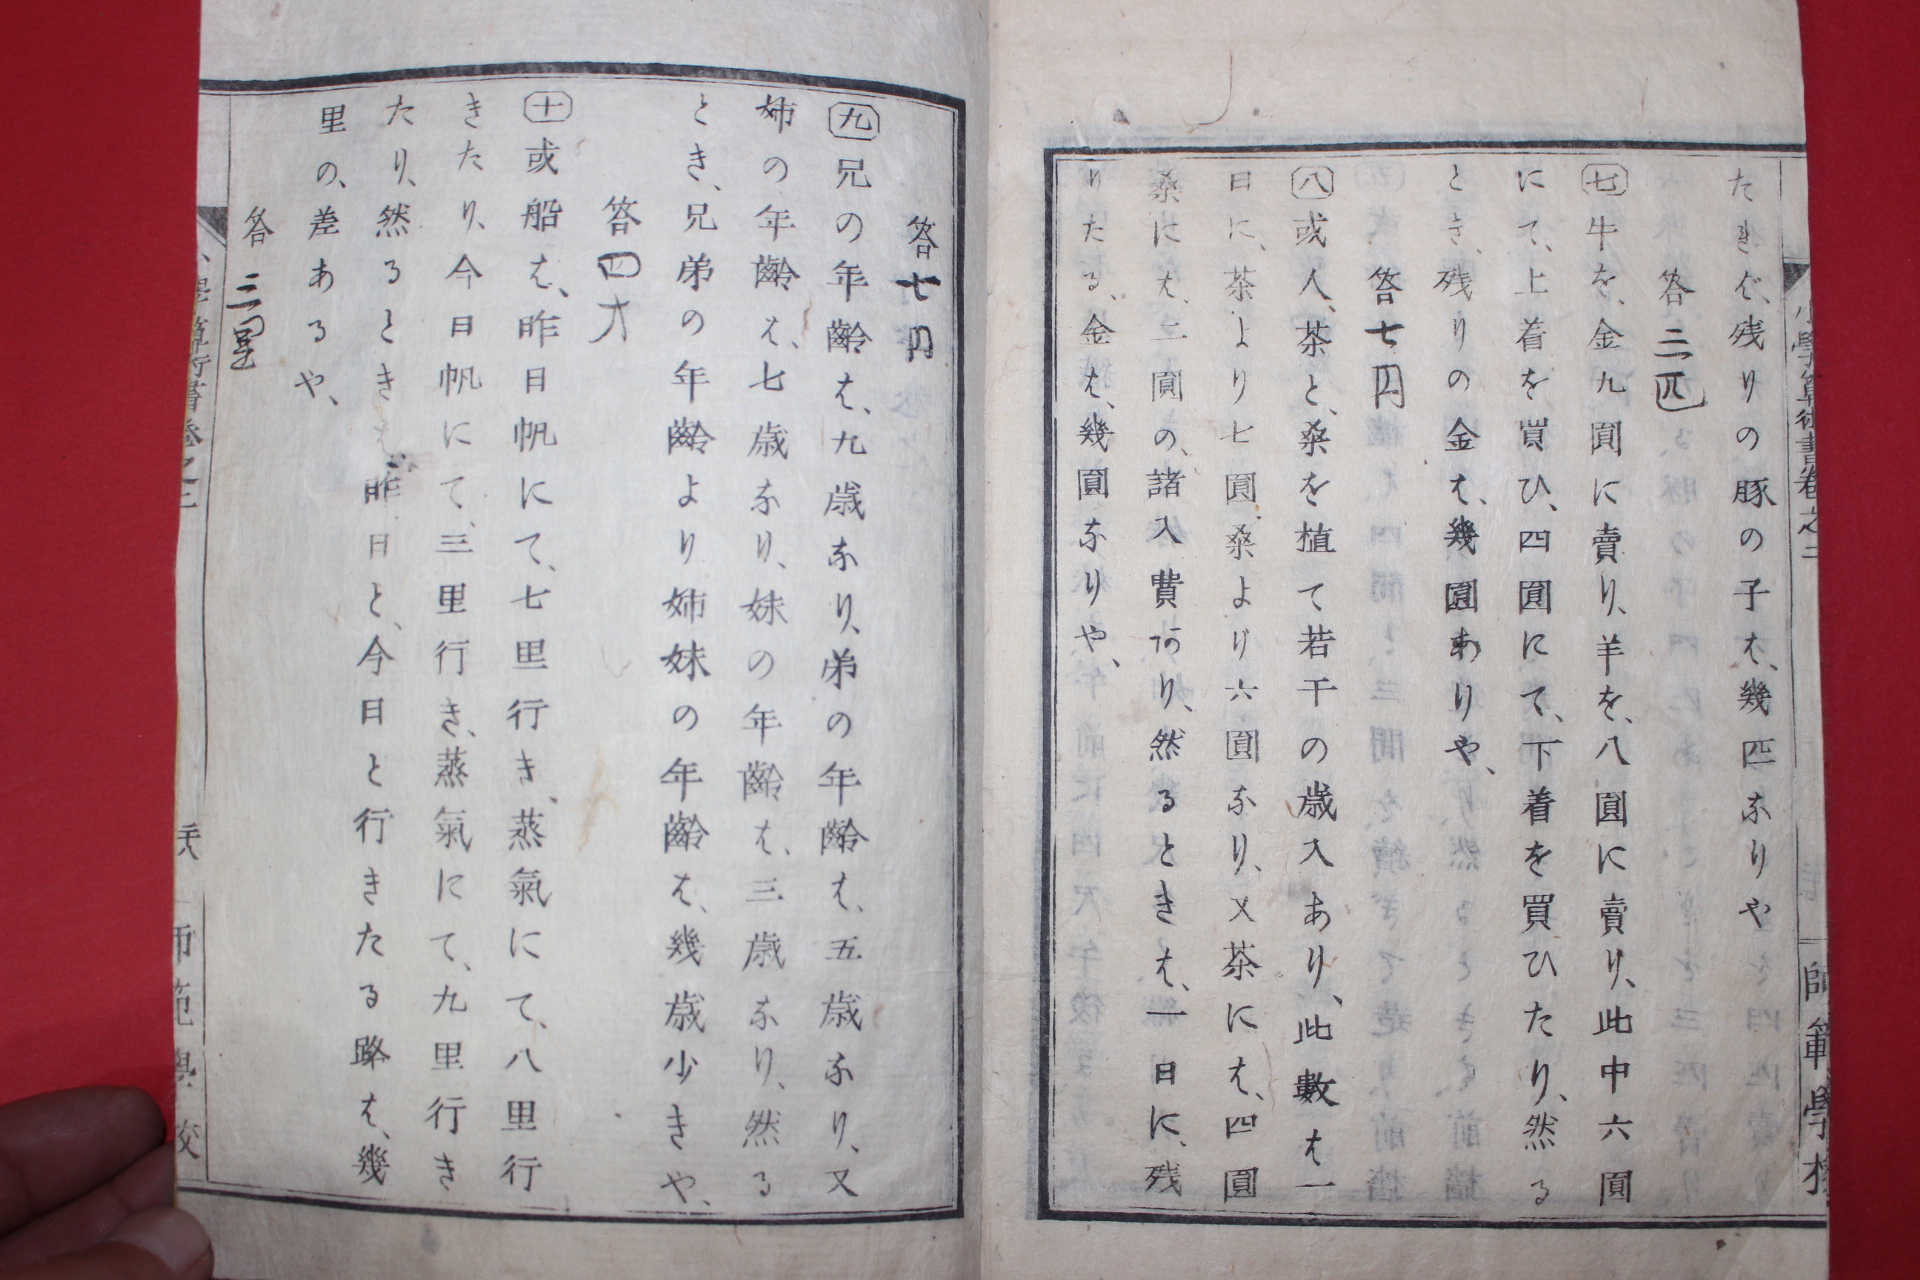 小學算術書卷之二
師範學校
たきば、残りの豚の子は、幾匹なりや
答 三匹
七 牛を、金九圓に賣り、羊を、八圓に賣り、此中六圓
にて、上着を買ひ、四圓にて、下着を買ひたり、然る
とき、残りの金は、幾圓ありや、
答 七円
八 或人、茶と、桑を植て若干の歳入あり、此數は一
日に、茶より七圓、桑より六圓なり、又茶には、四圓
桑には、二圓の、諸入費あり、然るときは、一日に、残
りたる、金は、幾圓なりや、
答 七円
九 兄の年齡は、九歳なり、弟の年齡は、五歳なり、又
姉の年齡は、七歳なり、妹の年齡は、三歳なり、然る
とき、兄弟の年齡より姉妹の年齡は、幾歳少きや、
答 四才
十 或船は、昨日帆にて、七里行き、蒸氣にて、八里行
きたり、今日帆にて、三里行き、蒸氣にて、九里行き
たり、然るときは、昨日と、今日と行きたる路は、幾
里の、差あるや、
答 三里
算術書卷之二
師範學校